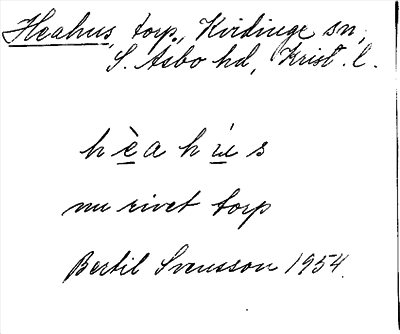 Heahus, torp., Kvidinge sn,
S. Åsbo hd, Krist. l.
h è a h ú s
nu rivet torp
Bertil Svensson 1954.